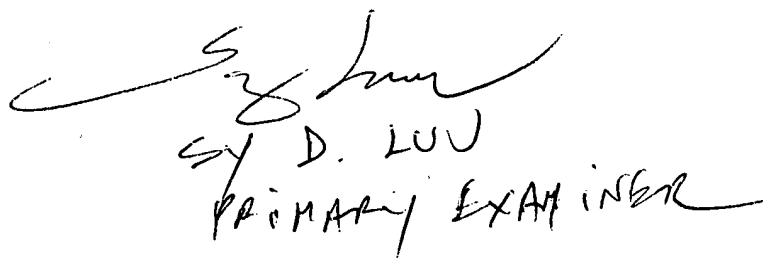 Sy Luu
SY D. LUU
PRIMARY EXAMINER